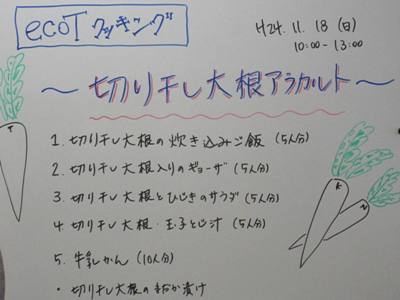 ecoT クッキング
H24.11.18(日)
10:00-13:00
～切り干し大根アラカルト～
1. 切り干し大根の炊き込みご飯(5人分)
2. 切り干し大根入りのギョーザ(5人分)
3. 切り干し大根とひじきのサラダ(5人分)
4. 切り干し大根・玉子とじ汁(5人分)
5. 牛乳かん(10人分)
・切り干し大根の